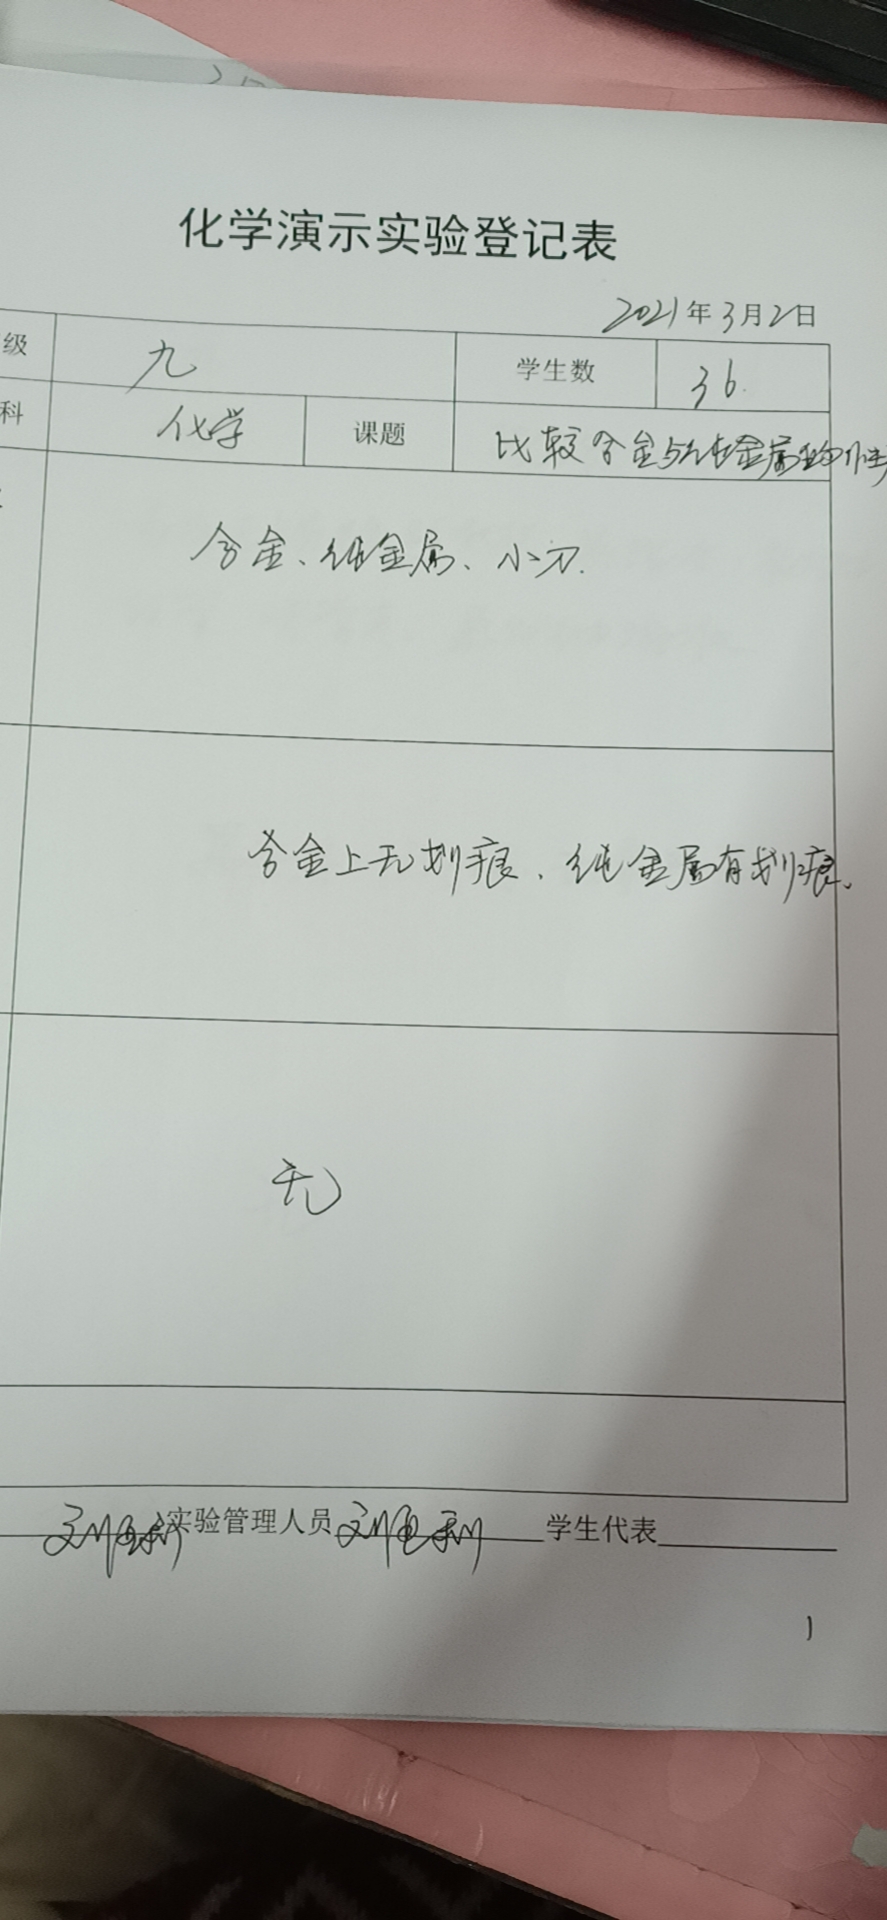 化学演示实验登记表
2021年3月2日
级 九 学生数 36.
科 化学 课题 比较合金与纯金属的
合金、纯金属、小刀.
合金上无划痕、纯金属有划痕。
无
实验管理人员 学生代表
1